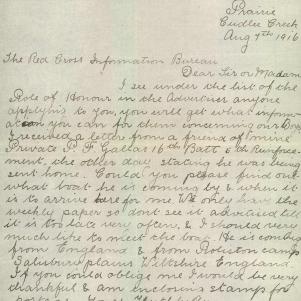 Prairie
Cudlee Creek
Aug 7th 1916
The Red Cross Information Bureau
Dear Sir or Madam
I see under the list of the
Role of Honour in the Advertiser anyone
applying to you, you will get what inform-
ation you can for them concerning our Boys
I received a letter from a friend of mine
Private P. F. 16th Batt 5th Reinforce-
ment, the other day stating he was being
sent home. Could you please find out
what boat he is coming by & when it
is to arrive here for me We only have the
weekly paper so dont see it advertised till
it is too late very often, & I should very
much like to meet the boat. He is coming
from England & from camp
Salisbury plains Wiltshire England
If you could oblige me I would be very
thankful & am enclosing stamps for